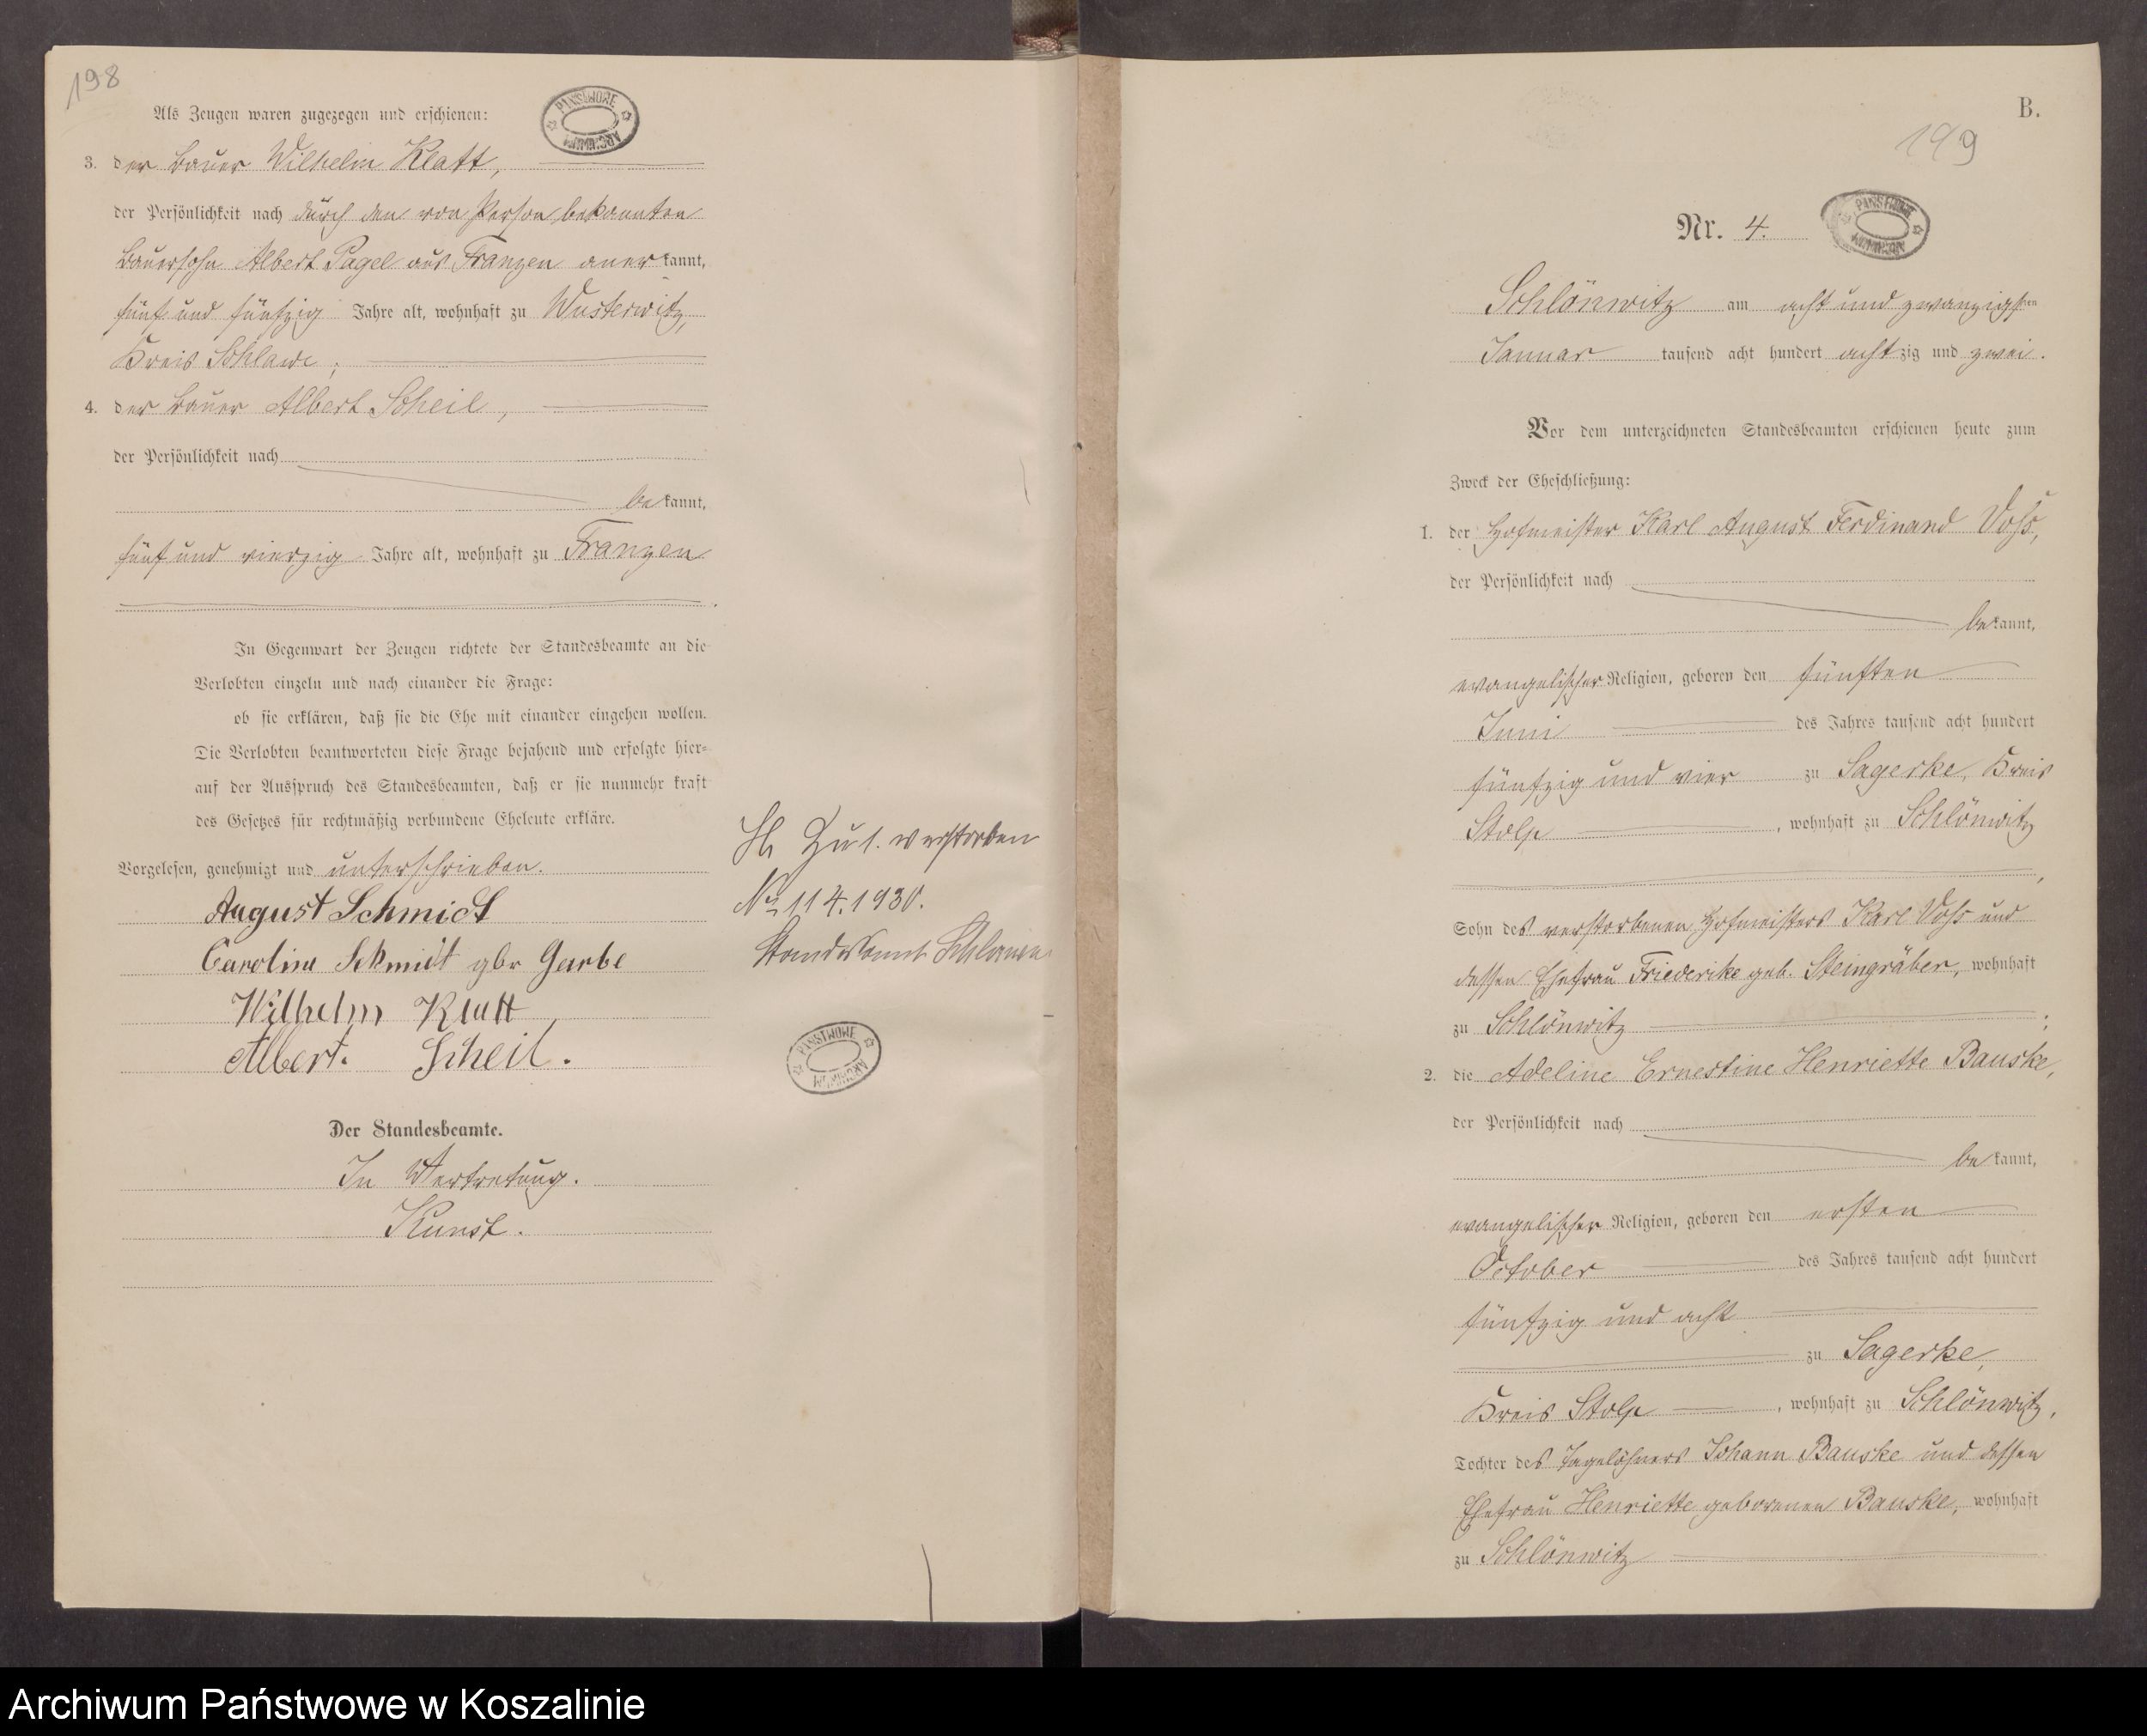 198
Als Zeugen waren zugezogen und erschienen:
PANSTWOWE ARCHIWUM
3. der Bauer Wilhelm Klatt,
der Persönlichkeit nach durch den von Person bekannten
Bauersohn Albert Pagel aus Franzen anerkannt,
fünf und fünfzig Jahre alt, wohnhaft zu Wusterwitz,
Kreis Schlawe;
4. der Bauer Albert Scheil,
der Persönlichkeit nach
bekannt,
fünf und vierzig Jahre alt, wohnhaft zu Franzen
.
In Gegenwart der Zeugen richtete der Standesbeamte an die
Verlobten einzeln und nach einander die Frage:
ob sie erklären, daß sie die Ehe mit einander eingehen wollen.
Die Verlobten beantworteten diese Frage bejahend und erfolgte hier=
auf der Ausspruch des Standesbeamten, daß er sie nunmehr kraft
des Gesetzes für rechtmäßig verbundene Eheleute erkläre.
Vorgelesen, genehmigt und unterschrieben.
August Schmidt
Carolina Schmidt gbr Garbe
Wilhelm Klatt
Albert. Scheil.
Der Standesbeamte.
In Vertretung.
Kunst.
Zu 1. verstorben
No 114.1930.
Standesamt Schlawe
PANSTWOWE ARCHIWUM
B.
199
Nr. 4.
PANSTWOWE ARCHIWUM
Schlönwitz am acht und zwanzigsten
Januar tausend acht hundert achtzig und zwei.
Vor dem unterzeichneten Standesbeamten erschienen heute zum
Zweck der Eheschließung:
1. der Hofmeister Karl August Ferdinand Voss,
der Persönlichkeit nach
bekannt,
evangelischer Religion, geboren den fünften
Juni des Jahres tausend acht hundert
fünfzig und vier zu Sagerke, Kreis
Stolp, wohnhaft zu Schlönwitz
,
Sohn des verstorbenen Hofmeisters Karl Voss und
dessen Ehefrau Friederike geb. Steingräber, wohnhaft
zu Schlönwitz;
2. die Adeline Ernestine Henriette Bauske,
der Persönlichkeit nach
bekannt,
evangelischer Religion, geboren den ersten
October des Jahres tausend acht hundert
fünfzig und acht
zu Sagerke,
Kreis Stolp, wohnhaft zu Schlönwitz,
Tochter des Tagelöhners Johann Bauske und dessen
Ehefrau Henriette geborenen Bauske, wohnhaft
zu Schlönwitz
Archiwum Państwowe w Koszalinie